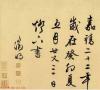 嘉靖二十二年
歲在癸卯夏
五月廿又二日
書
徵明